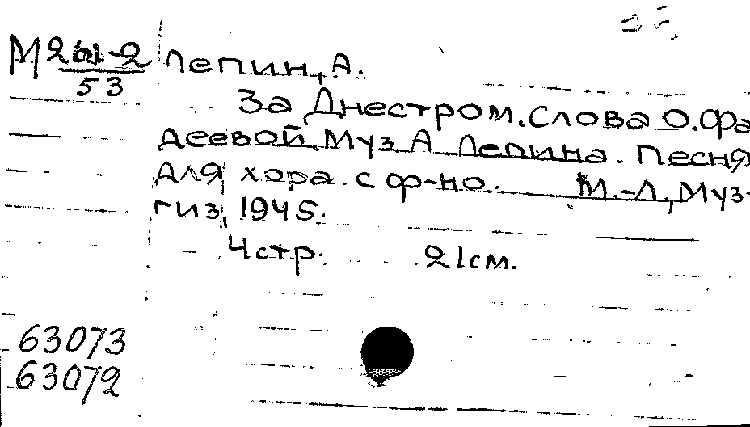 Лепин, А.
53
За Днестром. Слова О. Фа
деевой. Муз А Лепина. Песня
для хора. с ф-но. М.-Л., Муз-
гиз, 1945.
4 стр. 21 см.
63073
63072